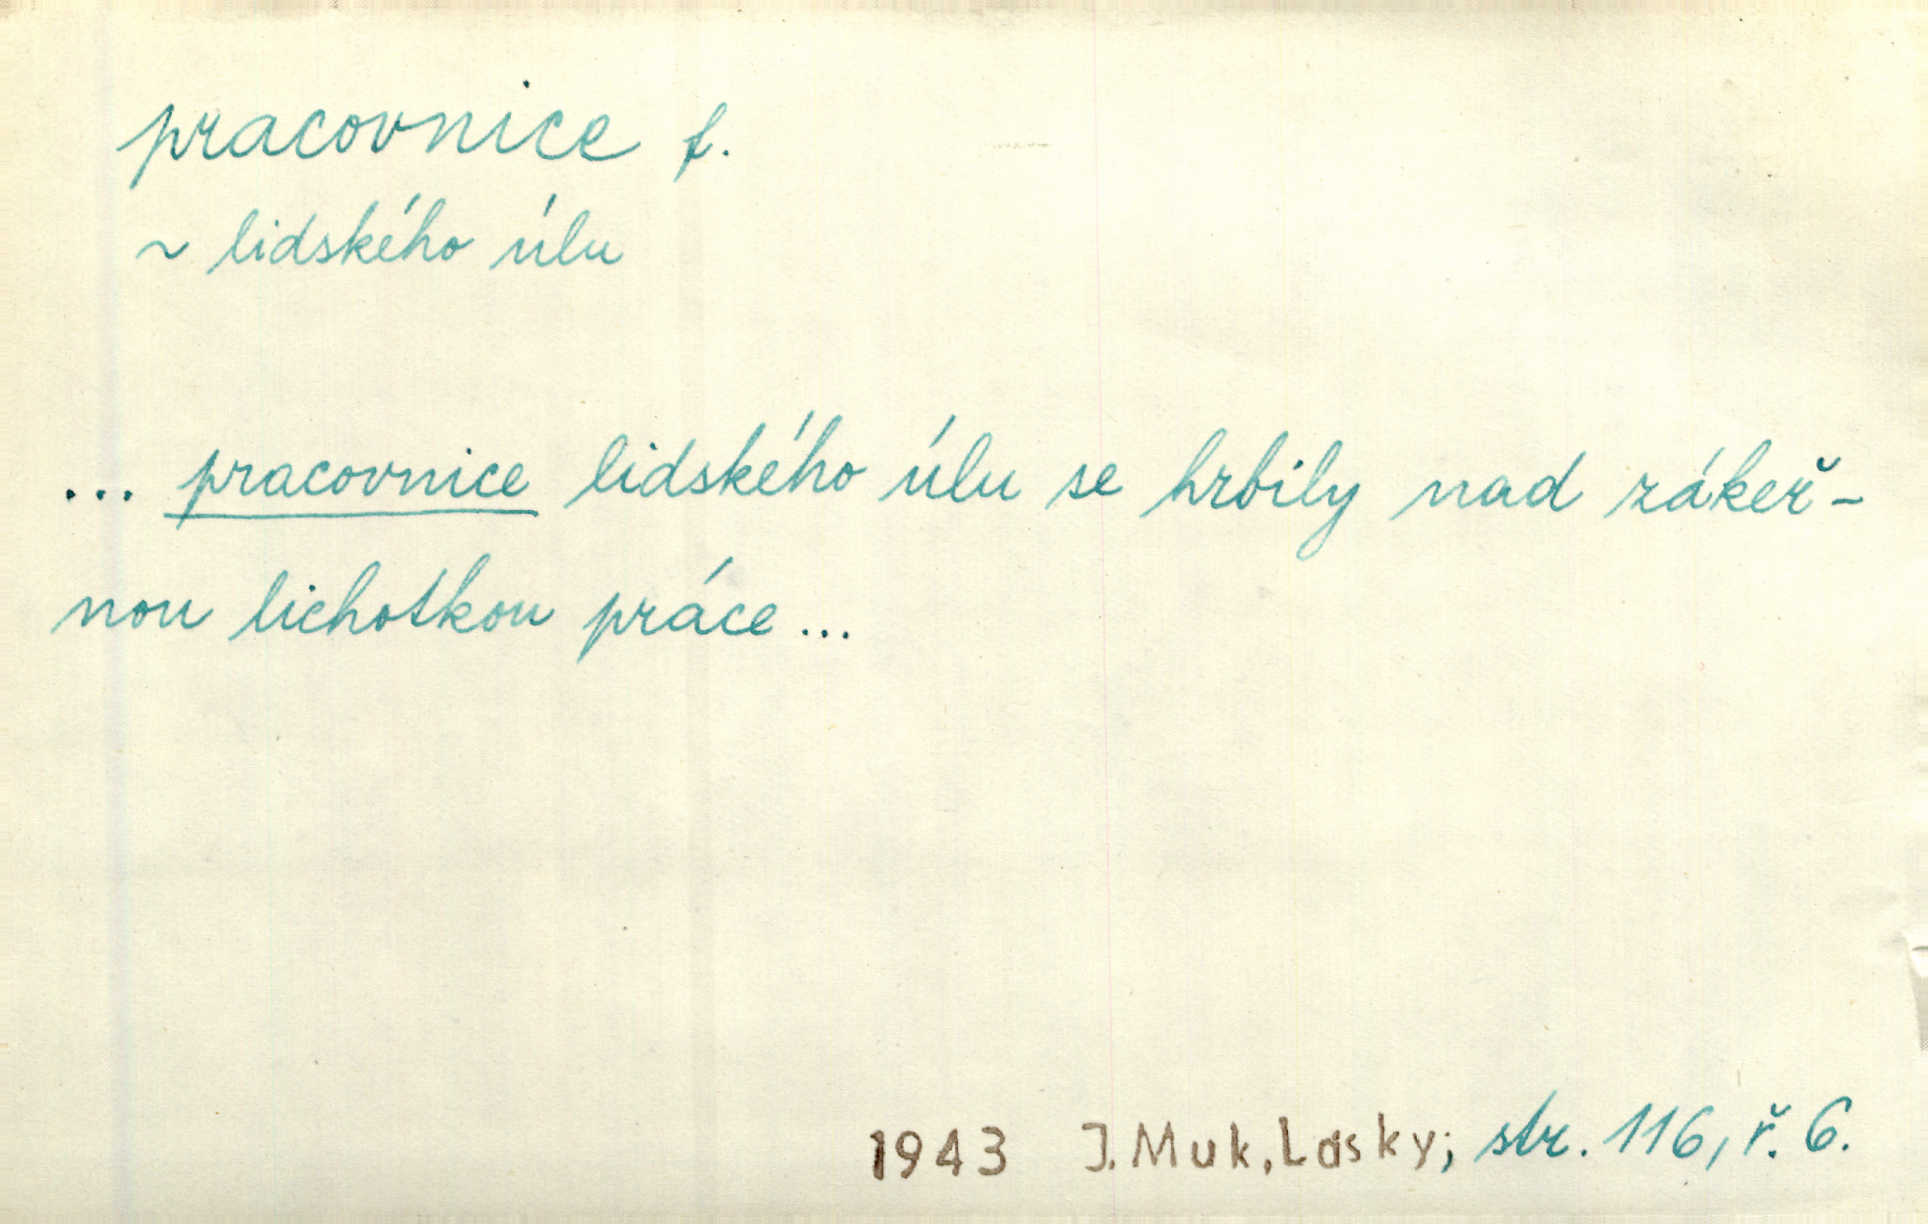 pracovnice f.
~ lidského úlu
... pracovnice lidského úlu se hrbily nad zákeř-
nou lichotkou práce ...
1943 J. Muk, Lásky; str. 116, ř. 6.